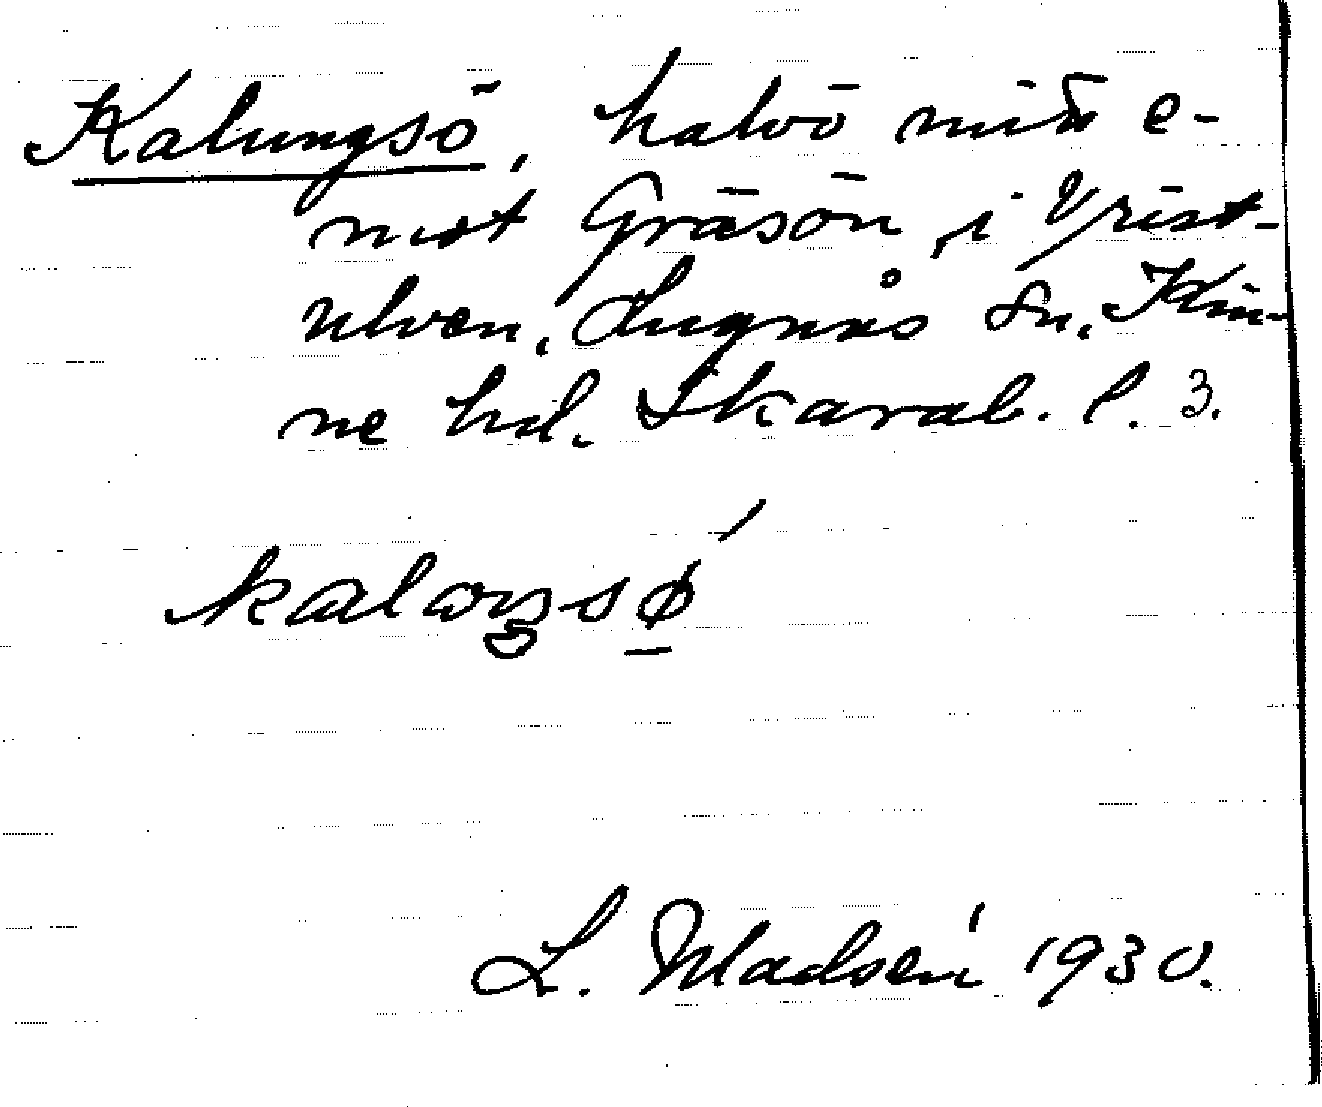 Kalungsö, halvö mitt e-
mot Gräsön, i Vrist-
ulven, Lugnås sn, Kin-
ne hd. Skarab. l. 3.
kaloŋsø
L. Madsén 1930.